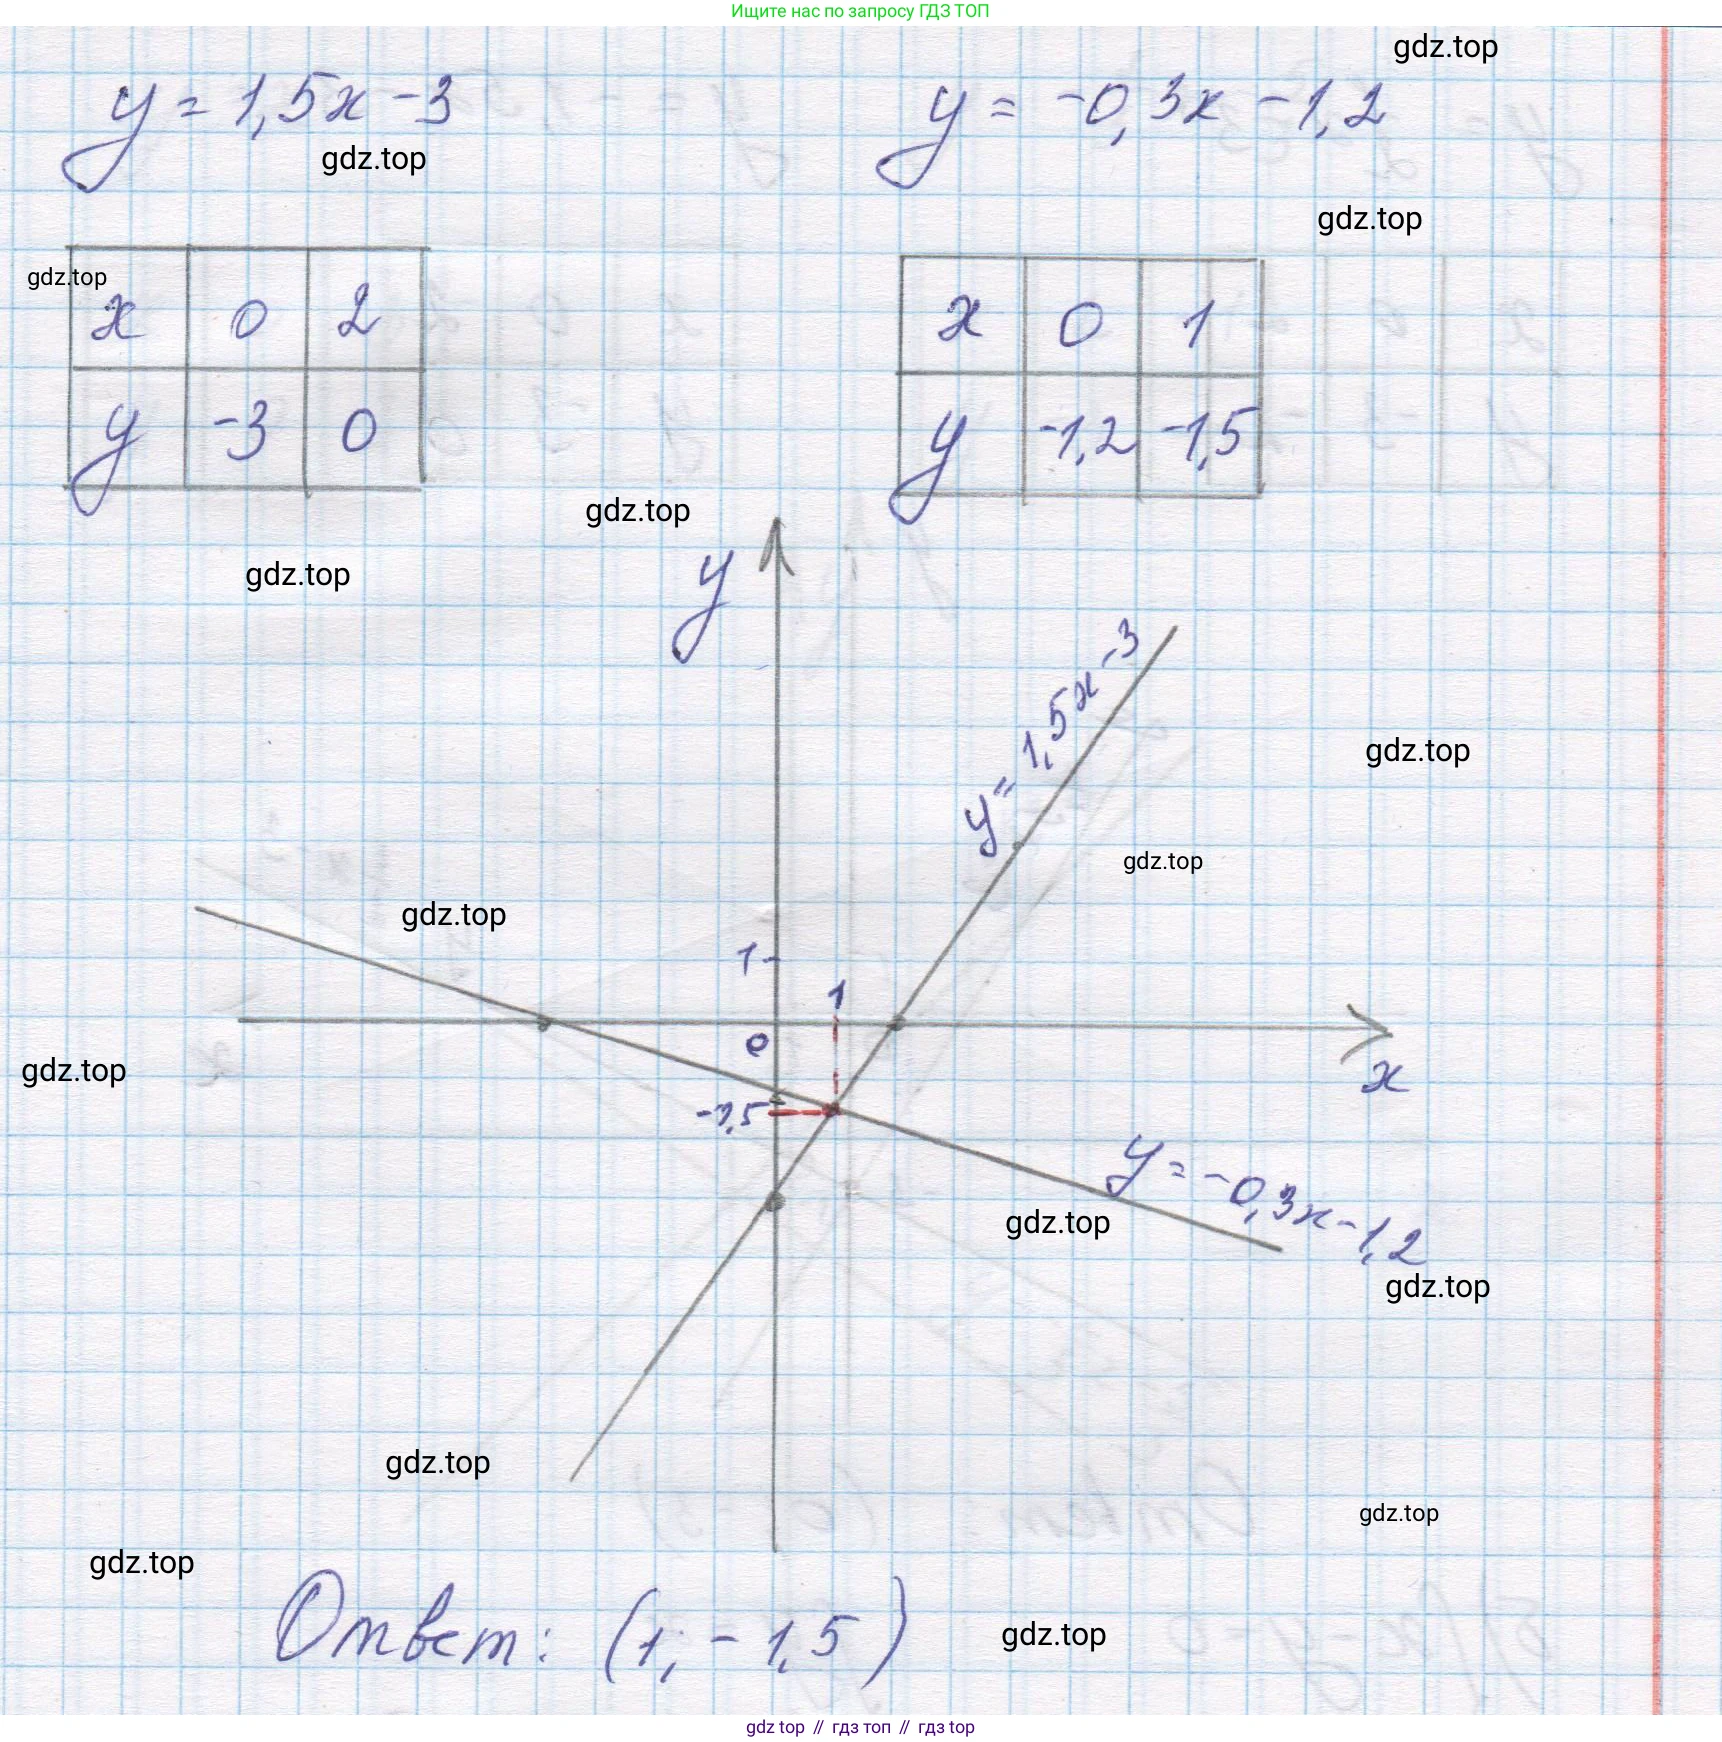 Ищите нас по запросу ГДЗ ТОП
gdz.top
y = 1,5x - 3
y = -0,3x - 1,2
gdz.top
gdz.top
gdz.top
x 0 2
y -3 0
x 0 1
y -1,2 -1,5
gdz.top
gdz.top
y
y = 1,5x - 3
gdz.top
gdz.top
gdz.top
1
1
0
gdz.top
x
-1,5
y = -0,3x - 1,2
gdz.top
gdz.top
gdz.top
gdz.top
gdz.top
Ответ: (1; -1,5)
gdz.top
gdz top // гдз топ // гдз top